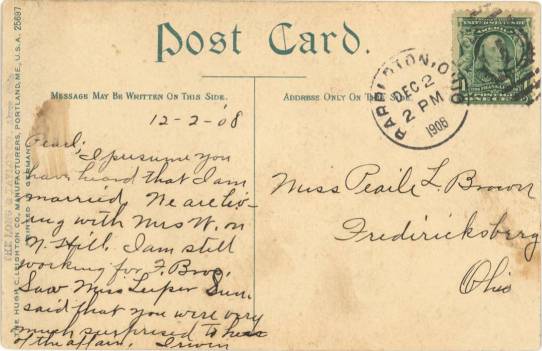 Post Card.
MESSAGE MAY BE WRITTEN ON THIS SIDE.
ADDRESS ONLY ON THIS SIDE.
12-2-'08
Pearl;
I presume you
have heard that I am
married. We are liv-
ing with Mrs W. on
N. Hill. I am still
working for F. Bros.
Saw Miss Leiper Sun.
said that you were very
much surprised to hear
of the affair. Irwin
DEC 2
2 PM
1908
OHIO
1
Miss Pearle L. Brown
Fredericksberg
Ohio
THE HUGH C. LEIGHTON CO., MANUFACTURERS, PORTLAND, ME., U.S.A. 25697
PRINTED IN GERMANY